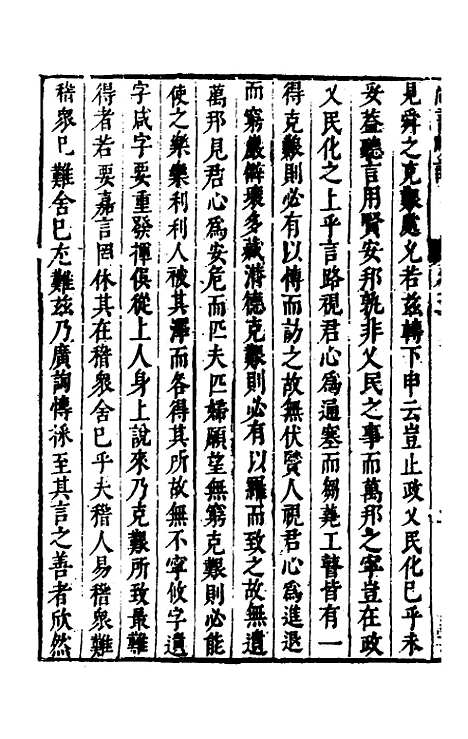 見舜之克艱處乂若兹轉下申云豈止政乂民化已乎未
妥益聽言用賢安邦孰非乂民之事而萬邦之寧豈在政
乂民化之上乎言路視君心爲通塞而芻蕘工瞽皆有一
得克艱則必有以博而訪之故無伏賢人視君心爲進退
而窮巖僻壞多藏潜德克艱則必有以羅而致之故無遺
萬邦見君心爲安危而匹夫匹婦願望無窮克艱則必能
使之樂樂利利人被其澤而各得其所故無不寧攸字遺
字咸字要重發揮俱從上人身上說來乃克艱所致最難
得者若要嘉言罔休其在稽衆舍已乎夫稽人易稽衆難
稽衆巳難舍巳尤難兹乃廣詢博采至其言之善者欣然